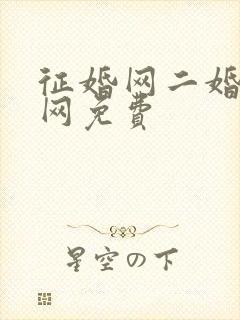 征婚网二婚
网免费
星空の下